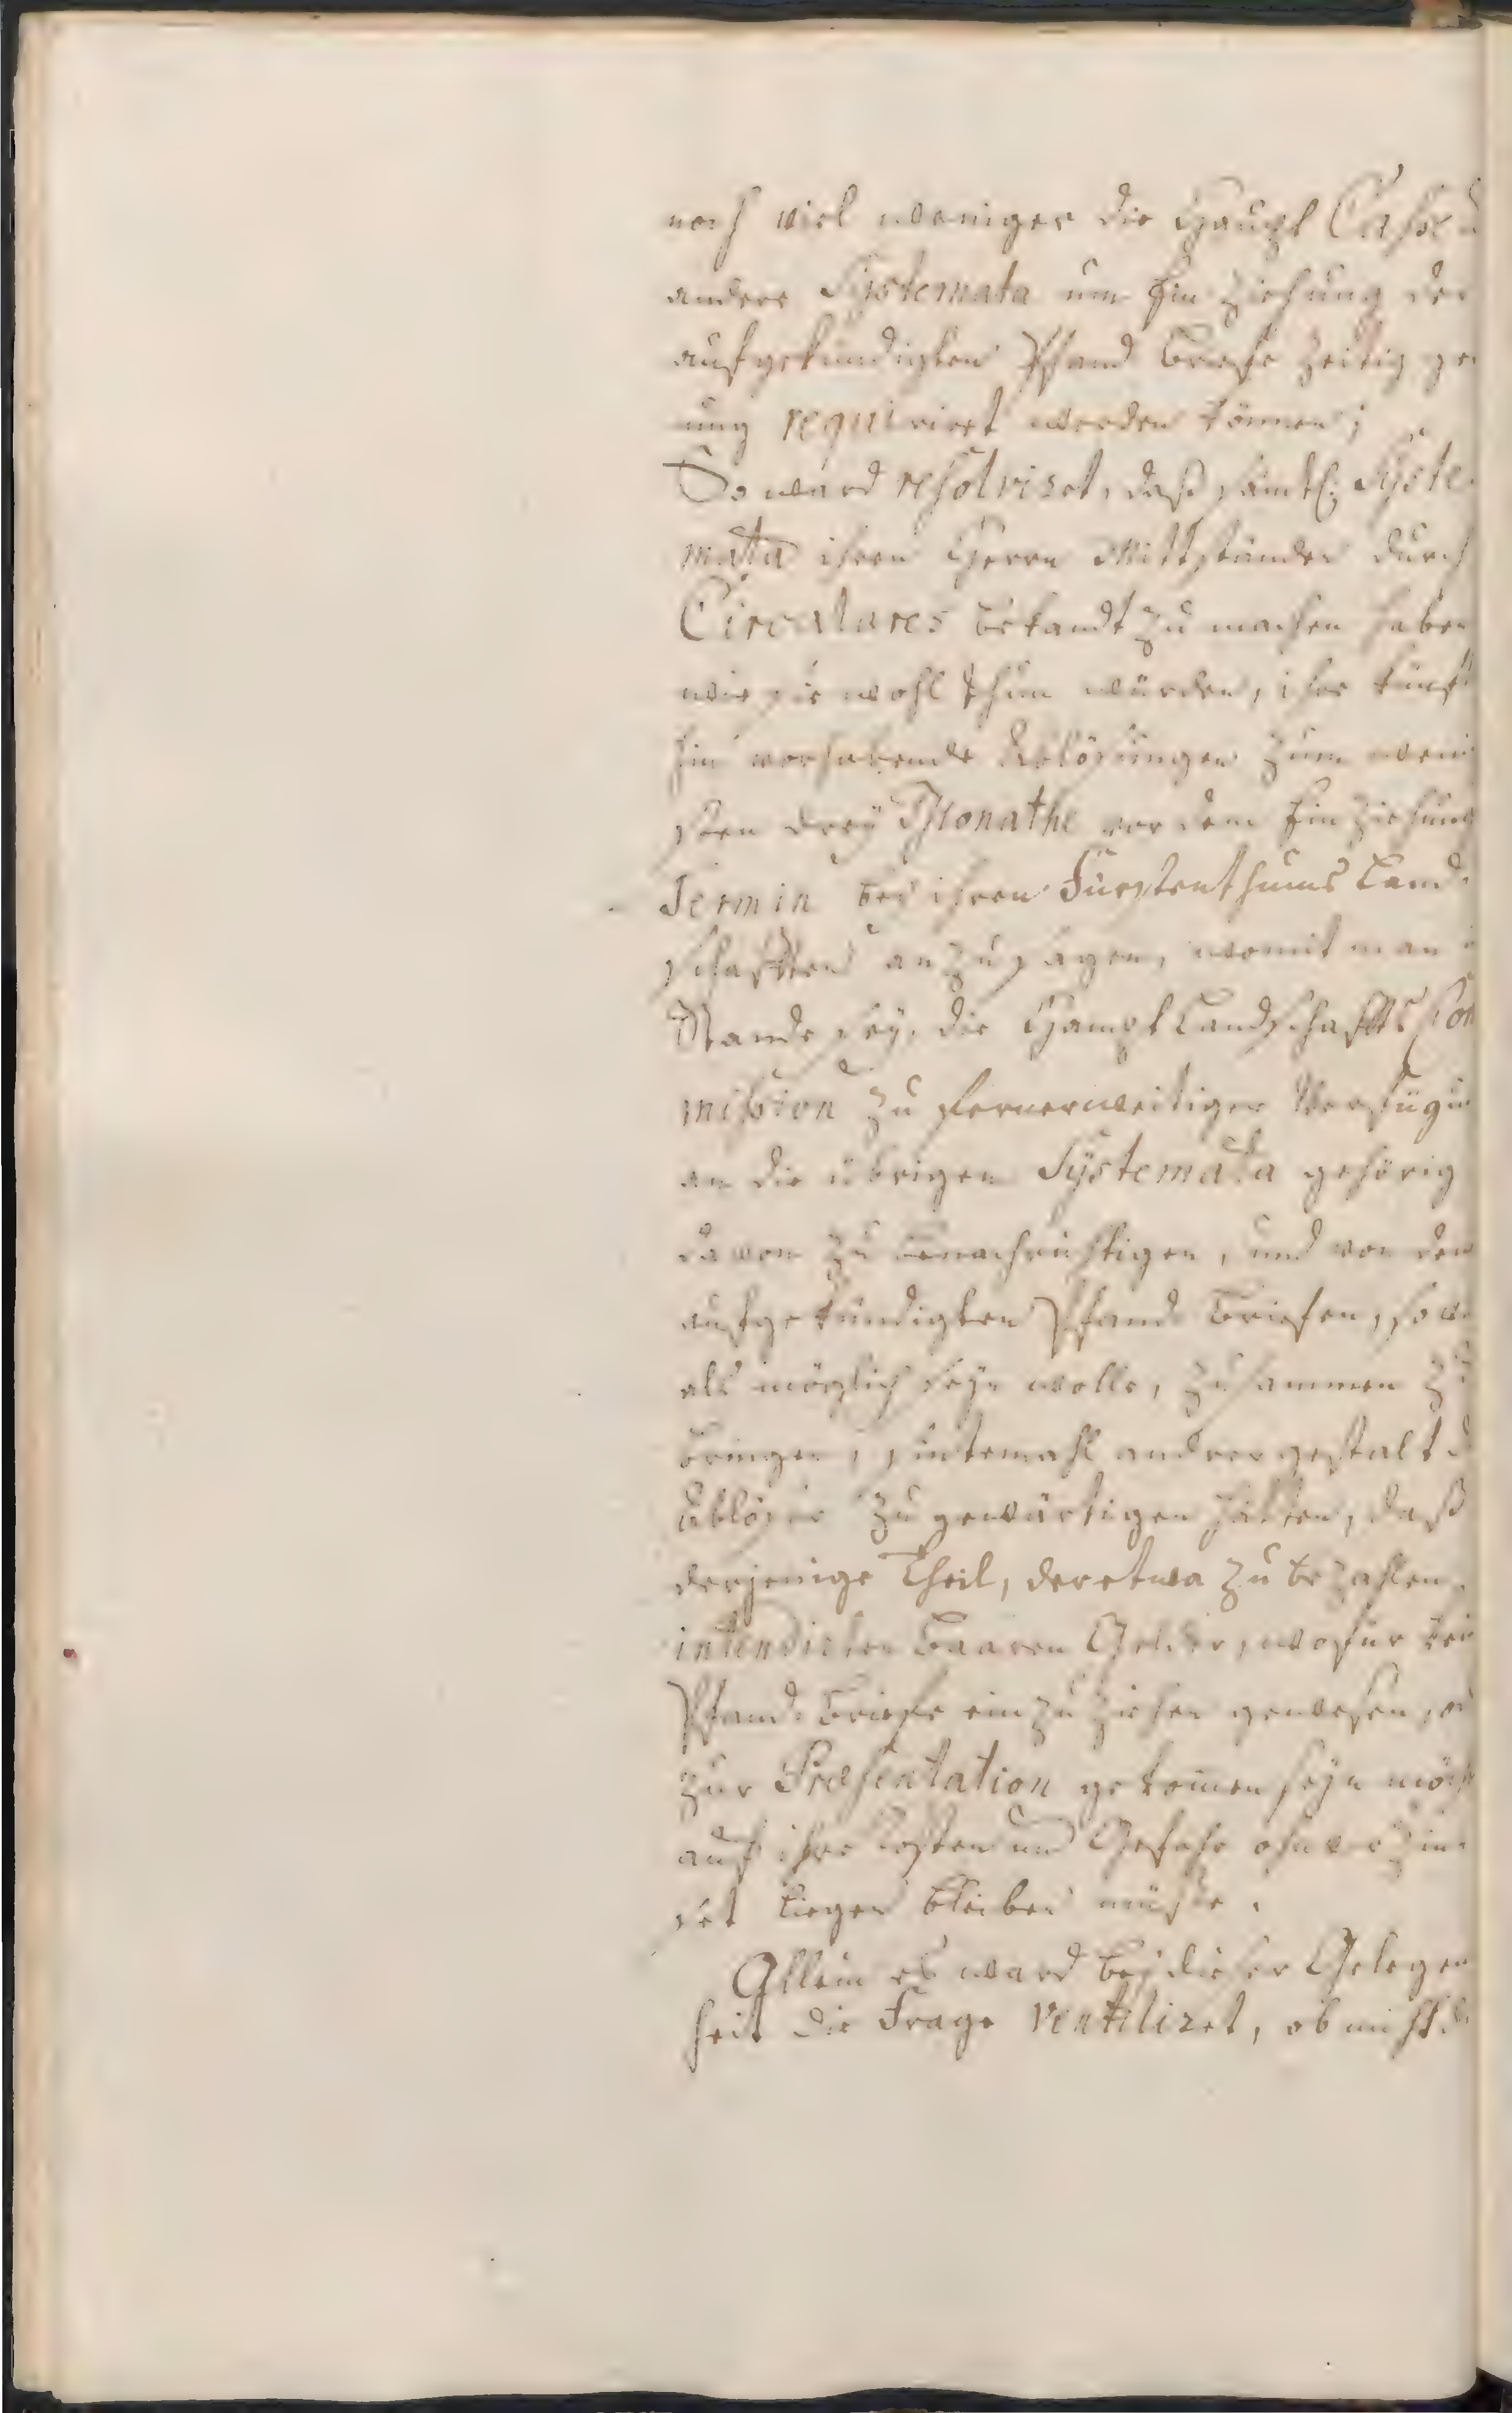 noch viel weniger die Haupt Casse u
andere Systemata um Einziehung der
aufgekündigten Pfand Briefe zeitig ge
nung requiriret werden können;
So ward resolviret, daß sämtl: Syste
mata ihren Herrn Mittständen durch
Circulares bekandt zu machen haben
wie sie wohl thun würden, ihre künft
hin vorhabende Ablösungen zum wenig
sten drey Monathe vor dem Einziehung
Termin bey ihren Fürstenthums Land
schafften anzusagen, womit man i
Stande sey, die Haupt Landschaffts Com
mission zu fernerweitiger Verfügun
an die übrigen Systemata gehörig
davon zu benachrichtigen, und von den
aufgekündigten Pfand Briefen, so viel
als möglich seyn wolle, zusammen zu
bringen, sintemahl andrergestalt d
Ablöser zu gewärtigen hätten, daß
derjenige Theil, der etwa zu bezahlen
intendirten baaren Gelder, wofür kein
Pfand Briefe einzuziehen gewesen, od
zur Præsentation gekommen seyn möcht
auf ihre Kosten und Gefahr ohnverzin
set liegen bleiben müste.
Allein es ward bey dieser Gelegen
heit die Frage ventiliret, ob nicht d